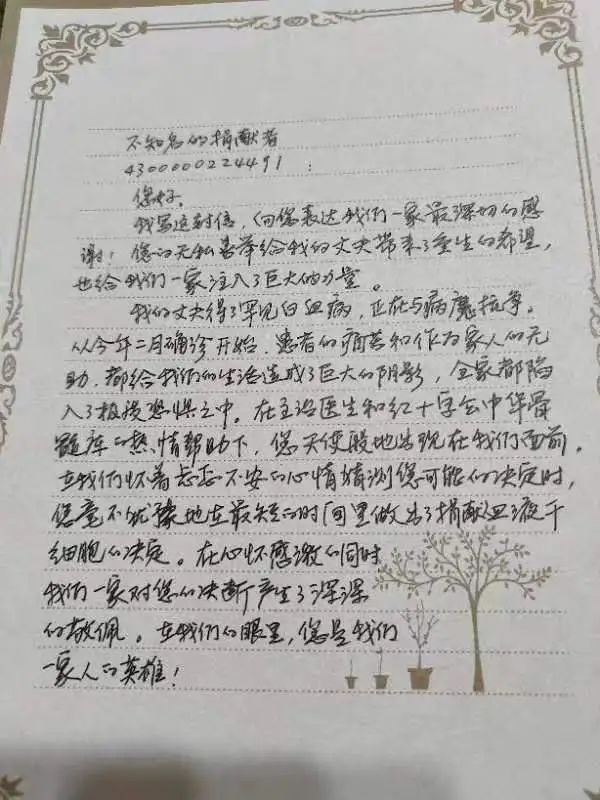 不知名的捐献者
430000224491:
您好。
我写这封信,向您表达我们一家最深切的感
谢!您的无私善举给我的丈夫带来了重生的希望,
也给我们一家注入了巨大的力量。
我的丈夫得了罕见白血病,正在与病魔抗争。
从今年二月确诊开始,患者的痛苦和作为家人的无
助,都给我们的生活造成了巨大的阴影,全家都陷
入了极度恐惧之中。在主治医生和红十字会中华骨
髓库的热情帮助下,您天使般地出现在我们面前。
在我们怀着忐忑不安的心情猜测您可能的决定时,
您毫不犹豫地在最短的时间里做出了捐献血液干
细胞的决定。在心怀感激的同时
我们一家对您的决断产生了深深
的敬佩。在我们的眼里,您是我们
一家人的英雄!